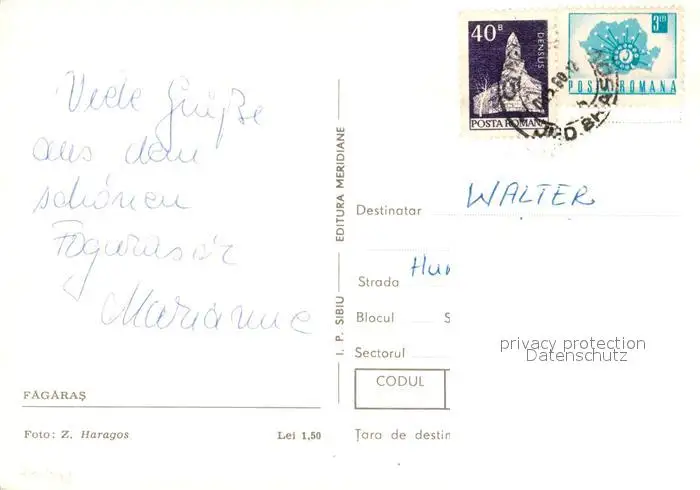 Viele Grüße
aus dem
schönen
Fogaras
Marianne
FĂGĂRAȘ
Foto: Z. Haragos
Lei 1,50
I. P. SIBIU
EDITURA MERIDIANE
40 B
DENSUȘ
POSTA ROMANA
3 LEI
POSTA ROMANA
Destinatar WALTER
Strada Hun
Blocul S
Sectorul
CODUL
Țara de destin
privacy protection
Datenschutz